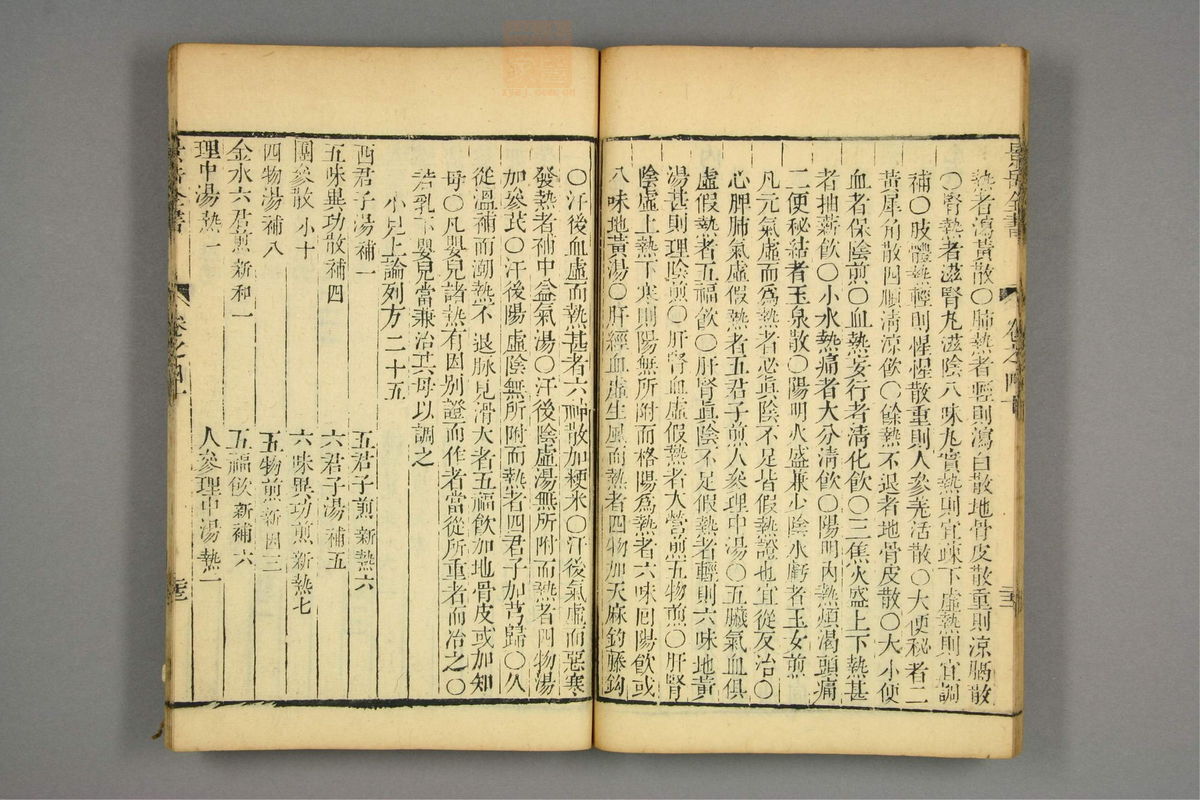 熱者瀉黃散〇肺熱者輕則瀉白散地骨皮散重則涼膈散
〇腎熱者滋腎丸滋陰八味丸實熱則宜疎下虛熱則宜調
補〇肢體熱輕則惺惺散重則人參羗活散〇大便秘者二
黃犀角散四順清涼飲〇餘熱不退者地骨皮散〇大小便
血者保陰煎〇血熱妄行者清化飲〇三焦火盛上下熱甚
者抽薪飲〇小水熱痛者大分清飲〇陽明內熱煩渴頭痛
二便秘結者玉泉散〇陽明火盛兼少陰水虧者玉女煎
凡元氣虛而爲熱者必眞陰不足皆假熱證也宜從反治〇
心脾肺氣虛假熱者五君子煎人參理中湯〇五臟氣血俱
虛假熱者五福飲〇肝腎眞陰不足假熱者輕則六味地黃
湯甚則理陰煎〇肝腎血虛假熱者大營煎五物煎〇肝腎
陰虛上熱下寒則陽無所附而格陽爲熱者六味回陽飲或
八味地黃湯〇肝經血虛生風而熱者四物加天麻鈎藤鈎
〇汗後血虛而熱甚者六神散加粳米〇汗後氣虛而惡寒
發熱者補中益氣湯〇汗後陰虛陽無所附而熱者四物湯
加參芪〇汗後陽虛陰無所附而熱者四君子加芎歸〇久
從溫補而潮熱不退脉見滑大者五福飲加地骨皮或加知
母〇凡嬰兒諸熱有因別證而作者當從所重者而治之〇
若乳下嬰兒當兼治其母以調之
小兒上論列方二十五
四君子湯 補一 五君子煎 新熱六
五味異功散 補四 六君子湯 補五
團參散 小十 六味異功煎 新熱七
四物湯 補八 五物煎 新因三
金水六君煎 新和一 五福飲 新補六
理中湯 熱一 人參理中湯 熱二
景岳全書 卷之四十